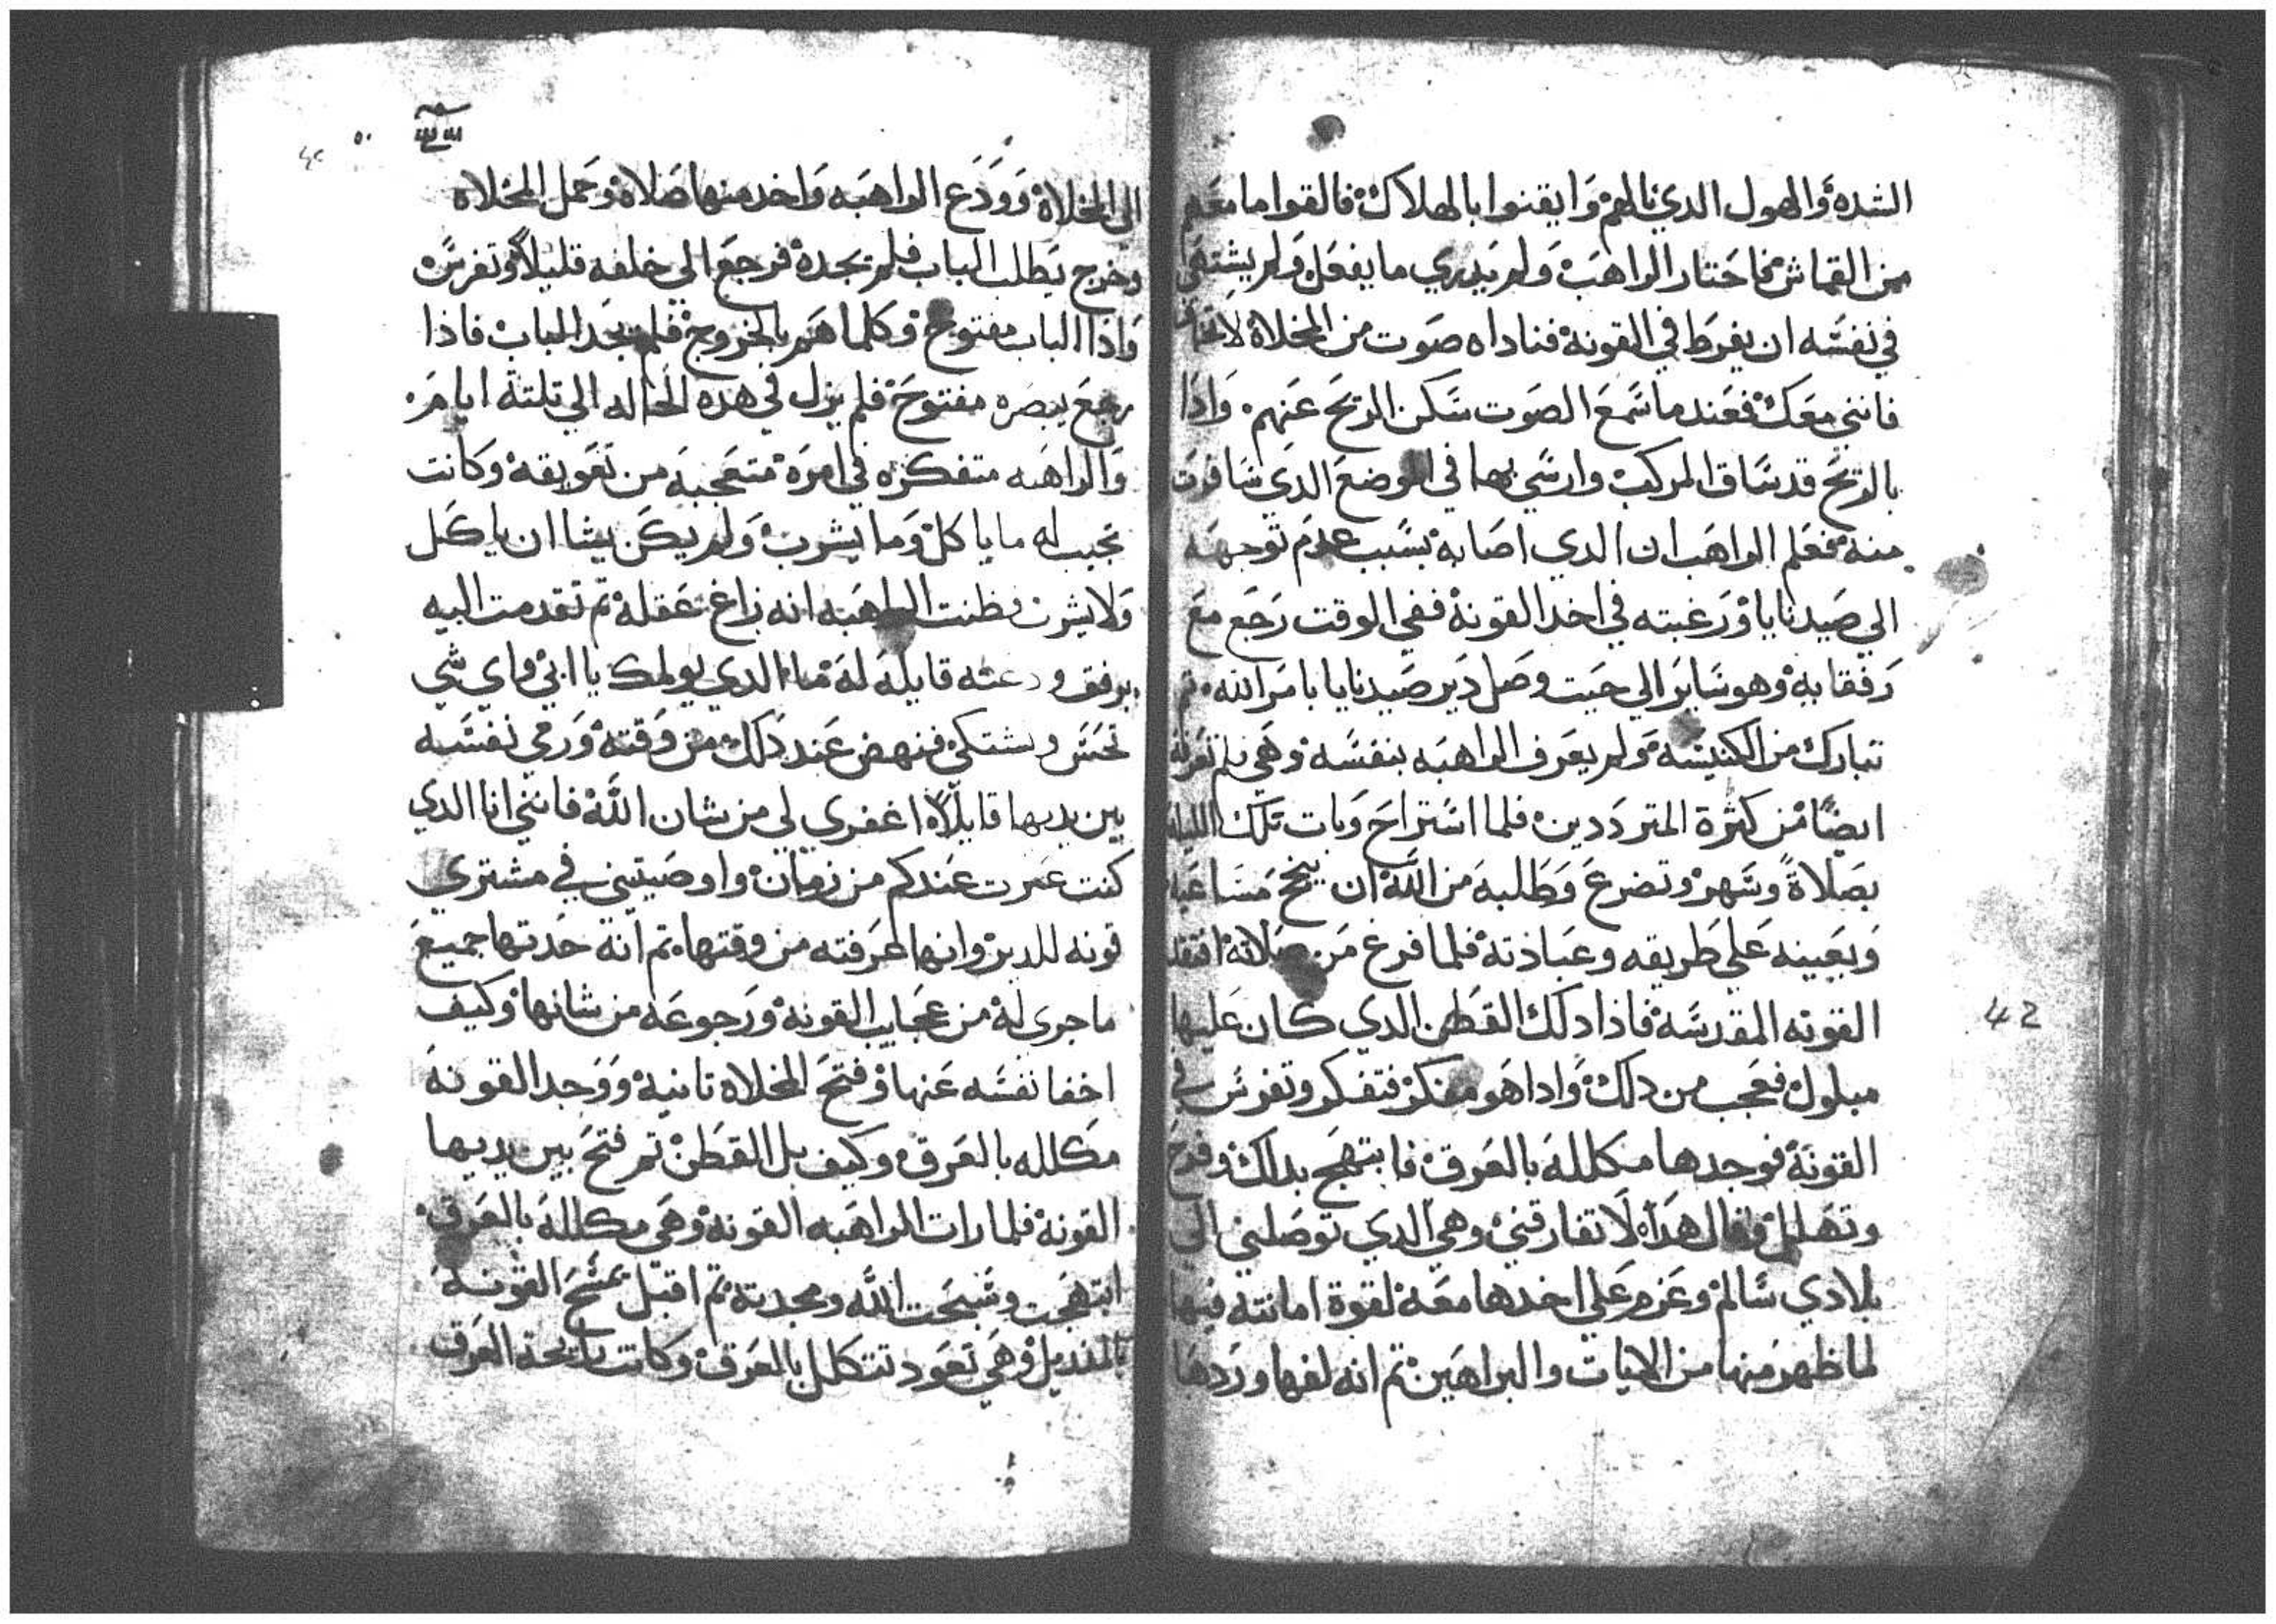 الشده والهول الدي نالهم وايقنوا بالهلاك فالقوا ما معهم
من القماش فاحتار الراهب ولم يدري ما يفعل ولم يشتهي
في نفسه ان يفرط في القونة فناداه صوت من المخلاة لا تخاف
فانني معك فعندما سمع الصوت سكن الريح عنهم واذا
بالريح قد ساق المركب وارسي بهما في الموضع الدي سافرت
منه فعلم الراهب ان الدي اصابه بسبب عدم توجهه
الي صيدنايا ورغبته في اخد القونة ففي الوقت رجع مع
رفقايه وهو ساير الي حيت وصل دير صيدنايا بامر الله تم
تبارك من الكنيسه ولم يعرف الراهبه بنفسه وهي لم تعرفه
ايضا من كثرة المترددين فلما استراح وبات تلك الليله
بصلاة وسهر وتضرع وطلبه من الله ان ينجح مساعيه
ويعينه علي طريقه وعباذته فلما فرغ من صلاته افتقد
القونه المقدسه فاذا دلك القطن الدي كان عليها
مبلول فعجب من دلك واداهو مفكر فتفكر وتفرس في
القونة فوجدها مكلله بالعرق فابتهج بدلك وفرح
وتهلل وقال هدا لا تفارقني وهي الدي توصلني الي
بلادي سالم وعزم علي اخدها معه لقوة امانته فيها
لما ظهر منها من الايات والبراهين تم انه لفها وردها
42
٥٠
الي المخلاة وودع الراهبه واخد منها صلاة وحمل المخلاه
وخرج يطلب الباب فلم يجده فرجع الي خلفه قليلا وتفرس
واذا الباب مفتوح وكلما هم بالخروج فلم يجد الباب فاذا
رجع يبصره مفتوح فلم يزل في هده الحاله الي تلتة ايام
والراهبه متفكره في امره متعجبه من تعويقه وكانت
تجيب له ما ياكل وما يشرب ولم يكن يشا ان ياكل
ولا يشرب فظنت الراهبه انه زاغ عقله تم تقدمت اليه
برفق ودعته قايله له ما الدي يولمك يا ابي واي شي
تحس وتشتكي فنهض عند دلك من وقته ورمي نفسه
بين يديها قايلا اغفري لي من شان الله فانني انا الدي
كنت عبرت عندكم من زمان واوصيتني في مشتري
قونه للدير وانها عرفته من وقتها تم انه حدتها جميع
ما جري له من عجايب القونه ورجوعه من شانها وكيف
اخفا نفسه عنها وفتح المخلاه تانية ووجد القونة
مكلله بالعرق وكيف بل القطن تم فتح بين يديها
القونة فلما رات الراهبه القونة وهي مكللة بالعرق
ابتهجت وسبحت الله ومجدته تم اقبل يمسح القونه
بالمنديل وهي تعود تتكلل بالعرق وكانت رايحة العرق